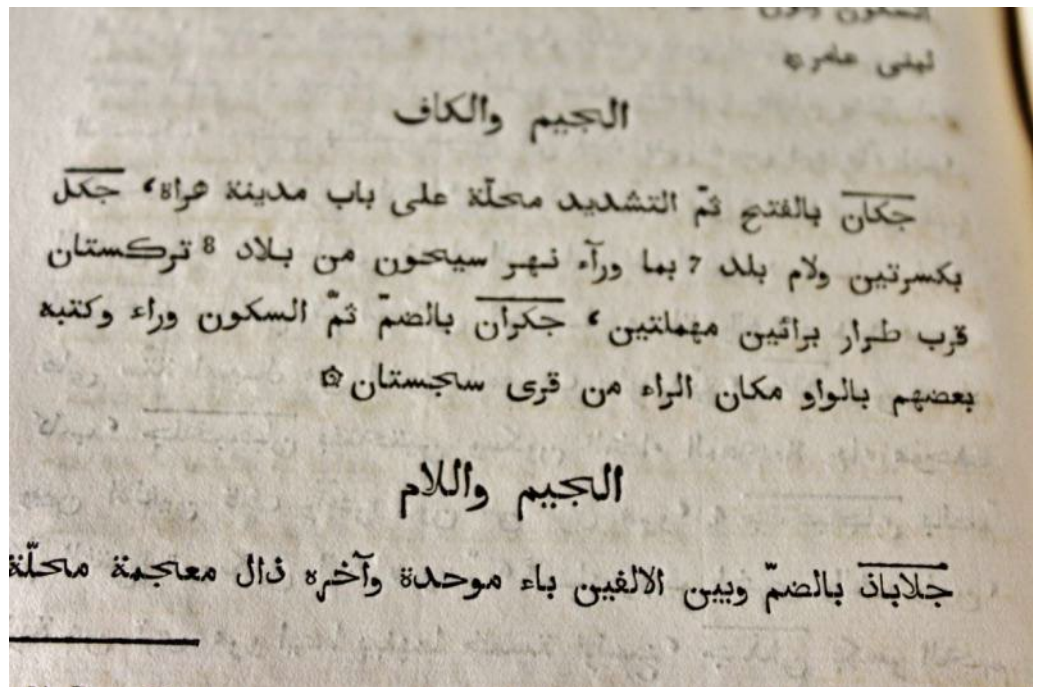 السكون ونون
لبنى عامر ۞
الجيم والكاف
جكان بالفتح ثمّ التشديد محلّة على باب مدينة هراة، جكل
بكسرتين ولام بلد 7 بما ورآء نهر سيحون من بلاد 8 تركستان
قرب طرار برائين مهملتين، جكران بالضمّ ثمّ السكون وراء وكتبه
بعضهم بالواو مكان الراء من قرى سجستان ۞
الجيم واللام
جلاباذ بالضمّ وبين الالفين باء موحدة وآخره ذال معجمة محلّة